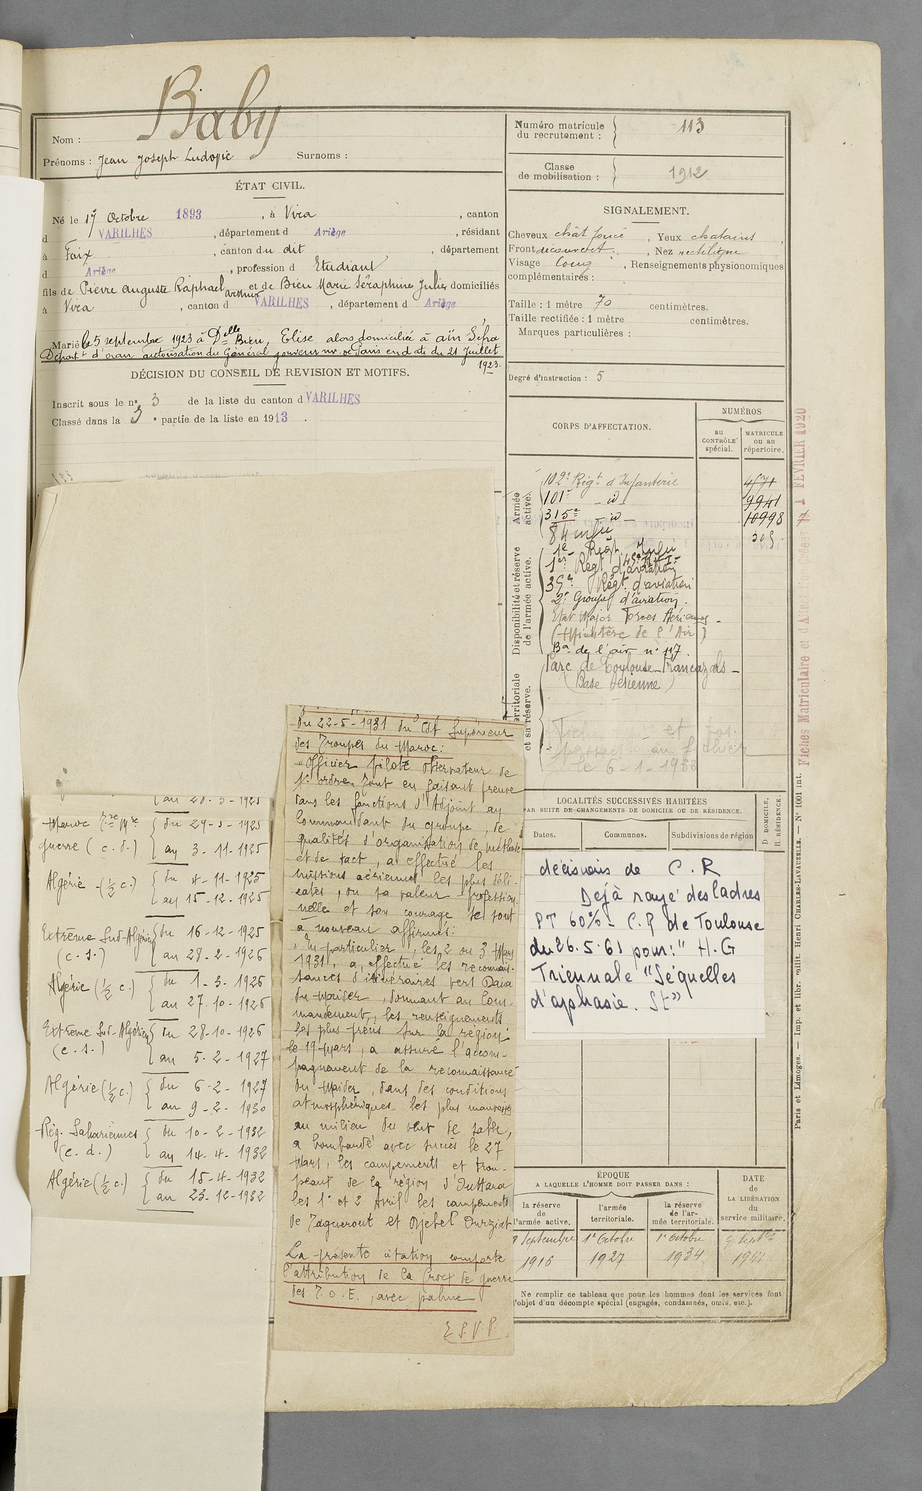 Nom : Baby
Prénoms : Jean Joseph Ludovic Surnoms :
ÉTAT CIVIL.
Né le 17 Octobre 1893, à Vira, canton
d VARILHES, département d Ariège, résidant
à Foix, canton du dit, département
d Ariège, profession d Etudiant
fils de Pierre Auguste Raphael Arthur et de Bieu Marie Séraphine Julie domiciliés
à Vira, canton d VARILHES, département d Ariège
Marié le 5 septembre 1923 à Delle Bieu, Elise alors domiciliée à aïn Sefra
Départt d'oran autorisation du Général gouverneur de Paris en date du 21 Juillet
1923.
DÉCISION DU CONSEIL DE REVISION ET MOTIFS.
Inscrit sous le n° 3 de la liste du canton d VARILHES
Classé dans la 3e partie de la liste en 1913.
Numéro matricule
du recrutement : 113
Classe
de mobilisation : 1912
SIGNALEMENT.
Cheveux chat foncé, Yeux chatains,
Front découvert, Nez rectiligne
Visage long, Renseignements physionomiques
complémentaires :
Taille : 1 mètre 70 centimètres.
Taille rectifiée : 1 mètre centimètres.
Marques particulières :
Degré d'instruction : 5
CORPS D'AFFECTATION.
NUMÉROS
au
CONTRÔLE
spécial.
MATRICULE
ou au
répertoire.
Armée
active.
102e Régt d'Infanterie
101e - id 9941
315e - id - 10998
84 infie 325
Disponibilité et réserve
de l'armée active.
1er Régt d'aviation
35e Régt d'aviation
2e Groupe d'aviation.
Etat Major Forces Aériennes
(Ministère de l'Air)
Bon de l'air n° 117.
Parc de Toulouse-Francazals -
(Base Aérienne)
territoriale
et sa réserve.
le 6-1-1938
Fiches Matriculaire et d'Affectation créées le 1 FEVRIER 1920
LOCALITÉS SUCCESSIVES HABITÉES
PAR SUITE DE CHANGEMENTS DE DOMICILE OU DE RÉSIDENCE.
Dates. Communes. Subdivisions de région
D DOMICILE.
R RÉSIDENCE.
décisions de C.R
Déjà rayé des Cadres
PT 60% - C.R de Toulouse
du 26.5.61 pour : "H.G
Triennale "Séquelles
d'aphasie. St"
ÉPOQUE
A LAQUELLE L'HOMME DOIT PASSER DANS :
la réserve
de
l'armée active.
l'armée
territoriale.
la réserve
de l'ar-
mée territoriale.
DATE
de
LA LIBÉRATION
du
service militaire.
Septembre 1er Octobre 1er Octobre
1916 1927 1934
Ne remplir ce tableau que pour les hommes dont les services font
l'objet d'un décompte spécial (engagés, condamnés, omis, etc.).
Paris et Limoges. — Imp. et libr. milit. Henri CHARLES-LAVAUZELLE. — N° 1001 int.
du 22-5-1931 du Cdt Supérieur
des Troupes du Maroc :
"Officier pilote observateur de
1er ordre, tout en faisant preuve
dans les fonctions d'Adjoint au
Commandant du groupe, de
qualités d'organisation de méthode
et de tact, a effectué les
missions aériennes les plus déli-
cates, où sa valeur profession-
nelle et son courage se sont
à nouveau affirmés :
En particulier, les 2 ou 3 Mars
1931, a effectué les reconnais-
sances d'itinéraires vers Daïa
du Maider, donnant au Com-
mandement, les renseignements
les plus précis sur la région
le 19 Mars, a assuré l'accom-
pagnement de la reconnaissance
du Maider, dans des conditions
atmosphériques les plus mauvaises
au milieu du vent de sable,
a bombardé avec succès le 27
Mars, les campements et trou-
peaux de la région d'Outtara
les 1er et 2 Avril les campements
de Zaguerout et Djebel Ourziat
La présente citation comporte
l'attribution de la Croix de guerre
des T.O.E., avec palme
T.S.V.P.
au 28-5-1925
Maroc
guerre (c.d.) du 29-5-1925
au 3-11-1925
Algérie (½ c.) du 4-11-1925
au 15-12-1925
Extrême Sud-Algérien du 16-12-1925
(c.s.) au 28-2-1926
Algérie (½ c.) du 1-3-1926
au 27-10-1926
Extrême Sud-Algérien du 28-10-1926
(c.s.) au 5-2-1927
Algérie (½ c.) du 6-2-1927
au 9-2-1930
Rég. Sahariennes du 10-2-1932
(c.d.) au 14-4-1932
Algérie (½ c.) du 15-4-1932
au 23-12-1932